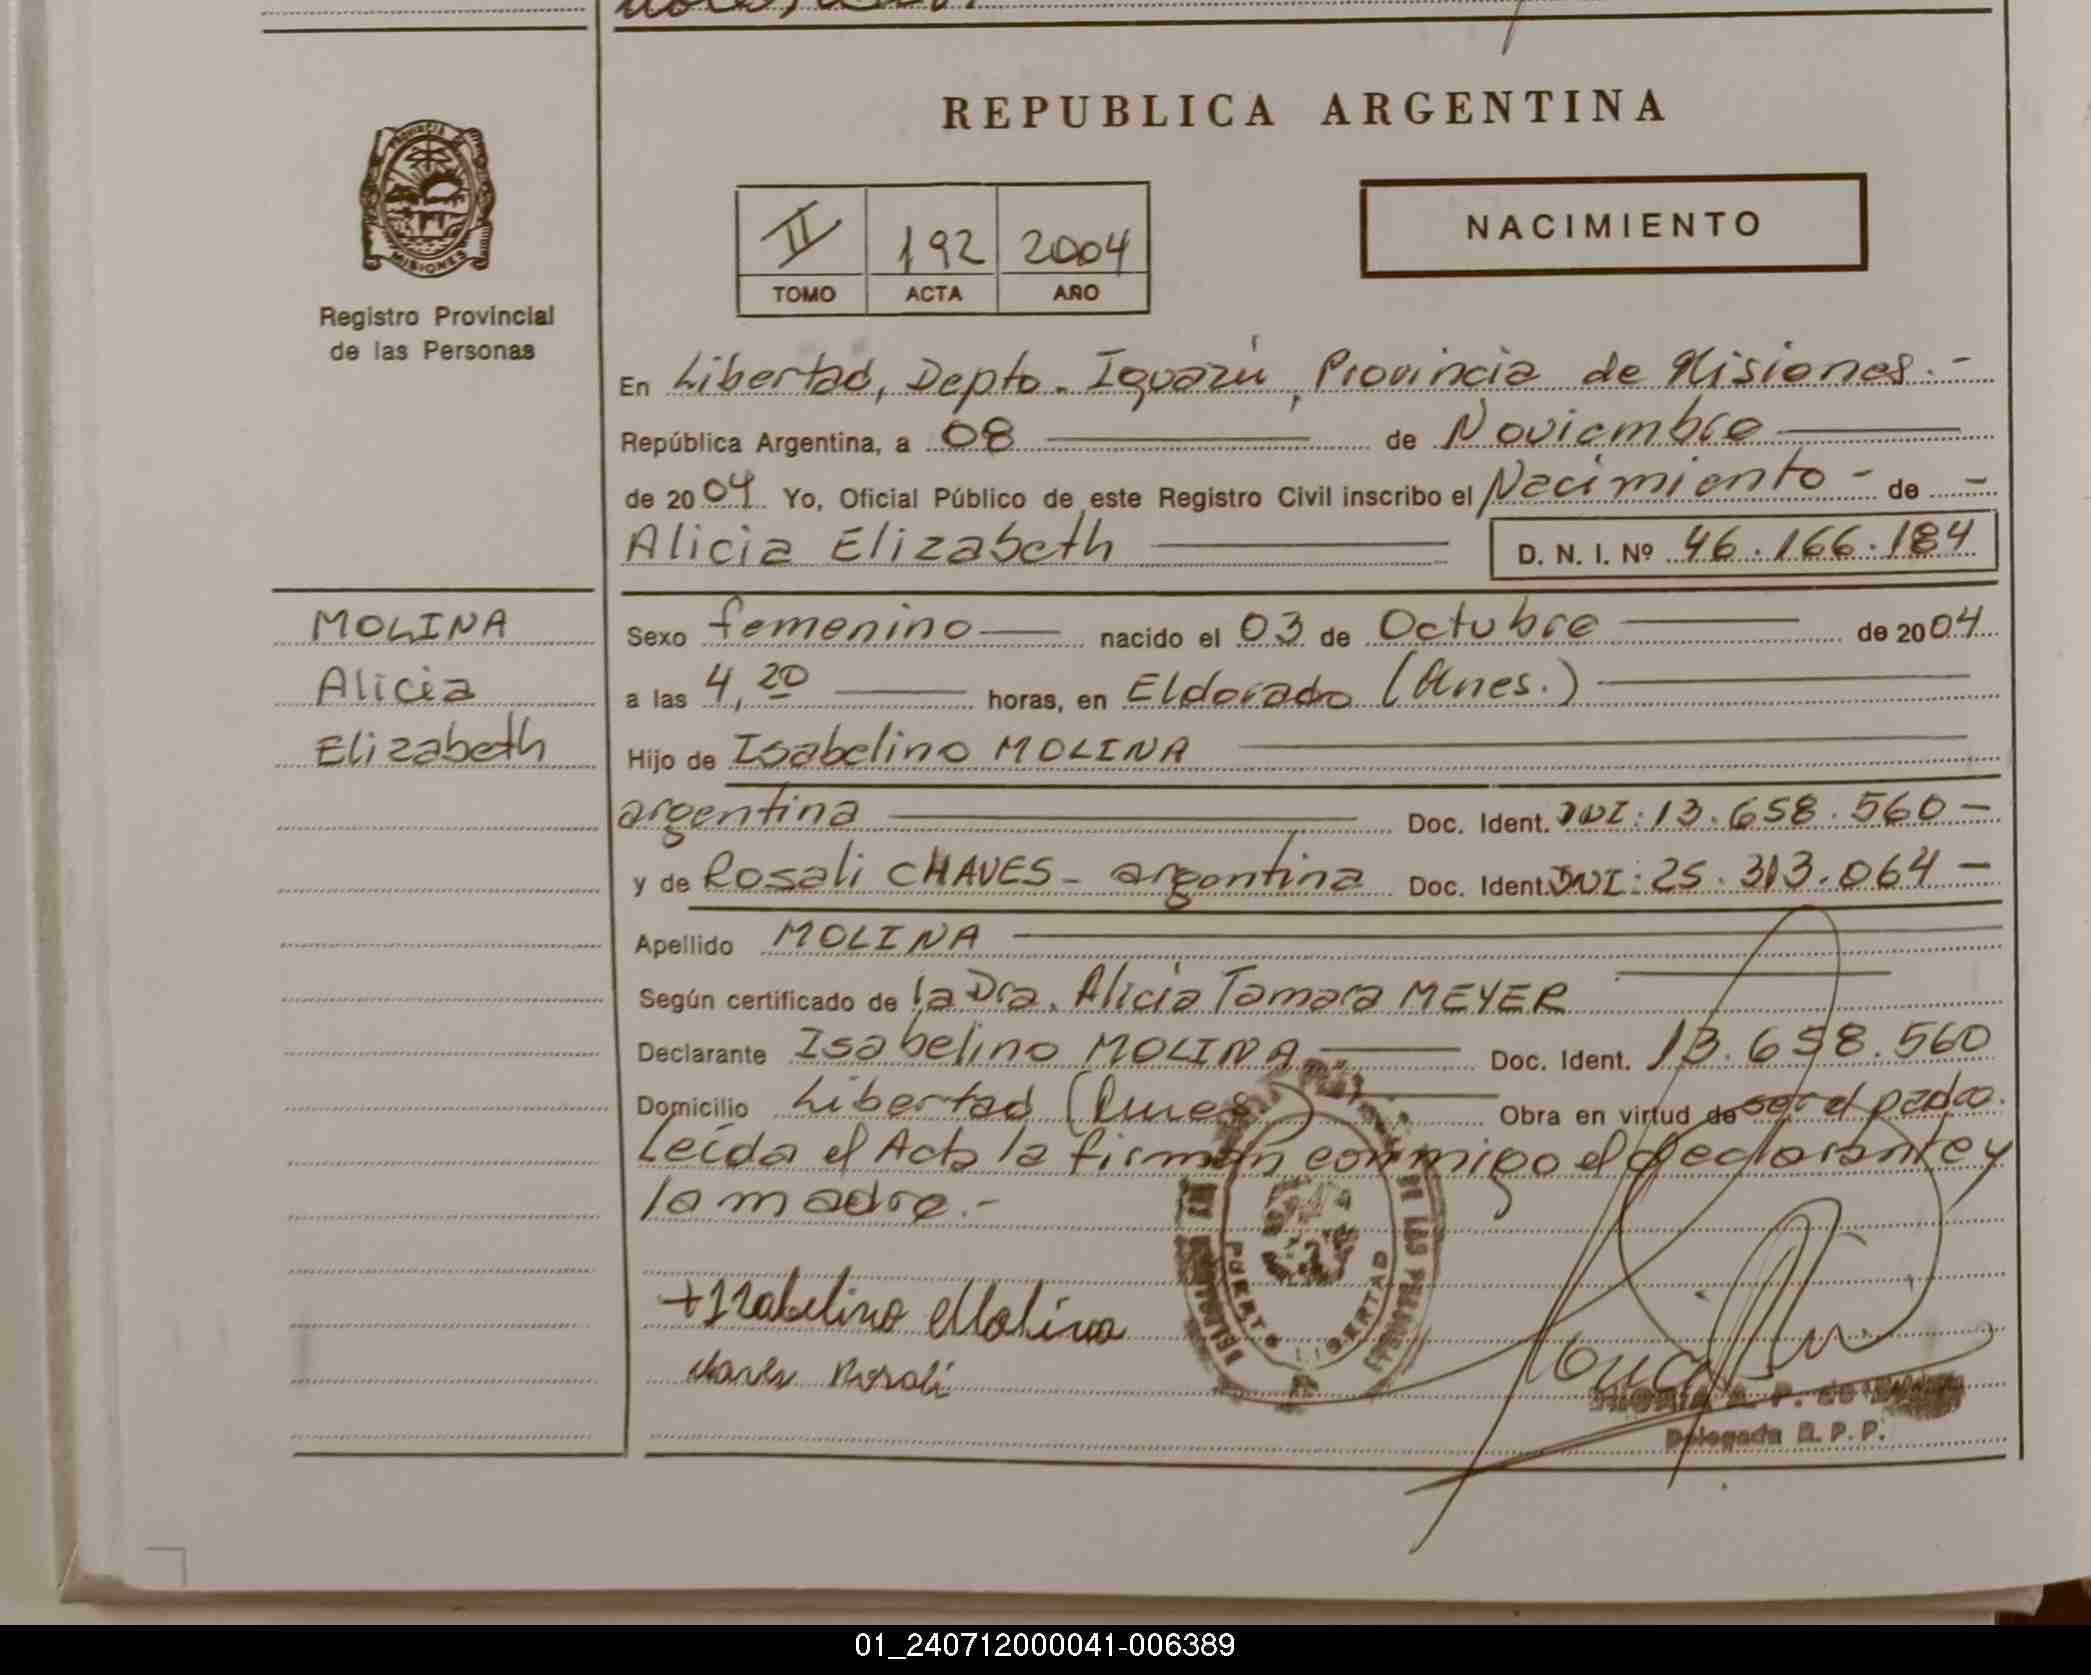 REPUBLICA ARGENTINA
PROVINCIA
MISIONES
Registro Provincial
de las Personas
II 192 2004
TOMO ACTA AÑO
NACIMIENTO
En Libertad, Depto. Iguazú, Provincia de Misiones.-
República Argentina, a 08 de Noviembre
de 2004 Yo, Oficial Público de este Registro Civil inscribo el Nacimiento - de -
Alicia Elizabeth D. N. I. Nº 46.166.184
MOLINA
Alicia
Elizabeth
Sexo femenino nacido el 03 de Octubre de 2004
a las 4,20 horas, en Eldorado (Mnes.)
Hijo de Isabelino MOLINA
argentina Doc. Ident. DNI: 13.658.560 -
y de Rosali CHAVES - argentina Doc. Ident. DNI: 25.313.064 -
Apellido MOLINA
Según certificado de la Dra. Alicia Tamara MEYER
Declarante Isabelino MOLINA Doc. Ident. 13.658.560
Domicilio Libertad (Mnes.) Obra en virtud de ser el padre.
Leída el Acta la firman conmigo el declarante y
la madre.-
+Isabelino Molina
Rosali
DE LAS PERSONAS
PUERTO LIBERTAD
A. P. de
Delegada R. P. P.
01_240712000041-006389